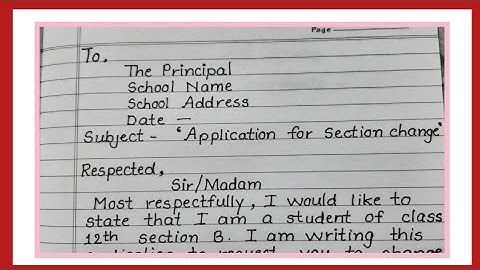 Page
To,
The Principal
School Name
School Address
Date –
Subject - 'Application for Section change'
Respected,
Sir/Madam
Most respectfully, I would like to
state that I am a student of class
12th section B. I am writing this
application to request you to change